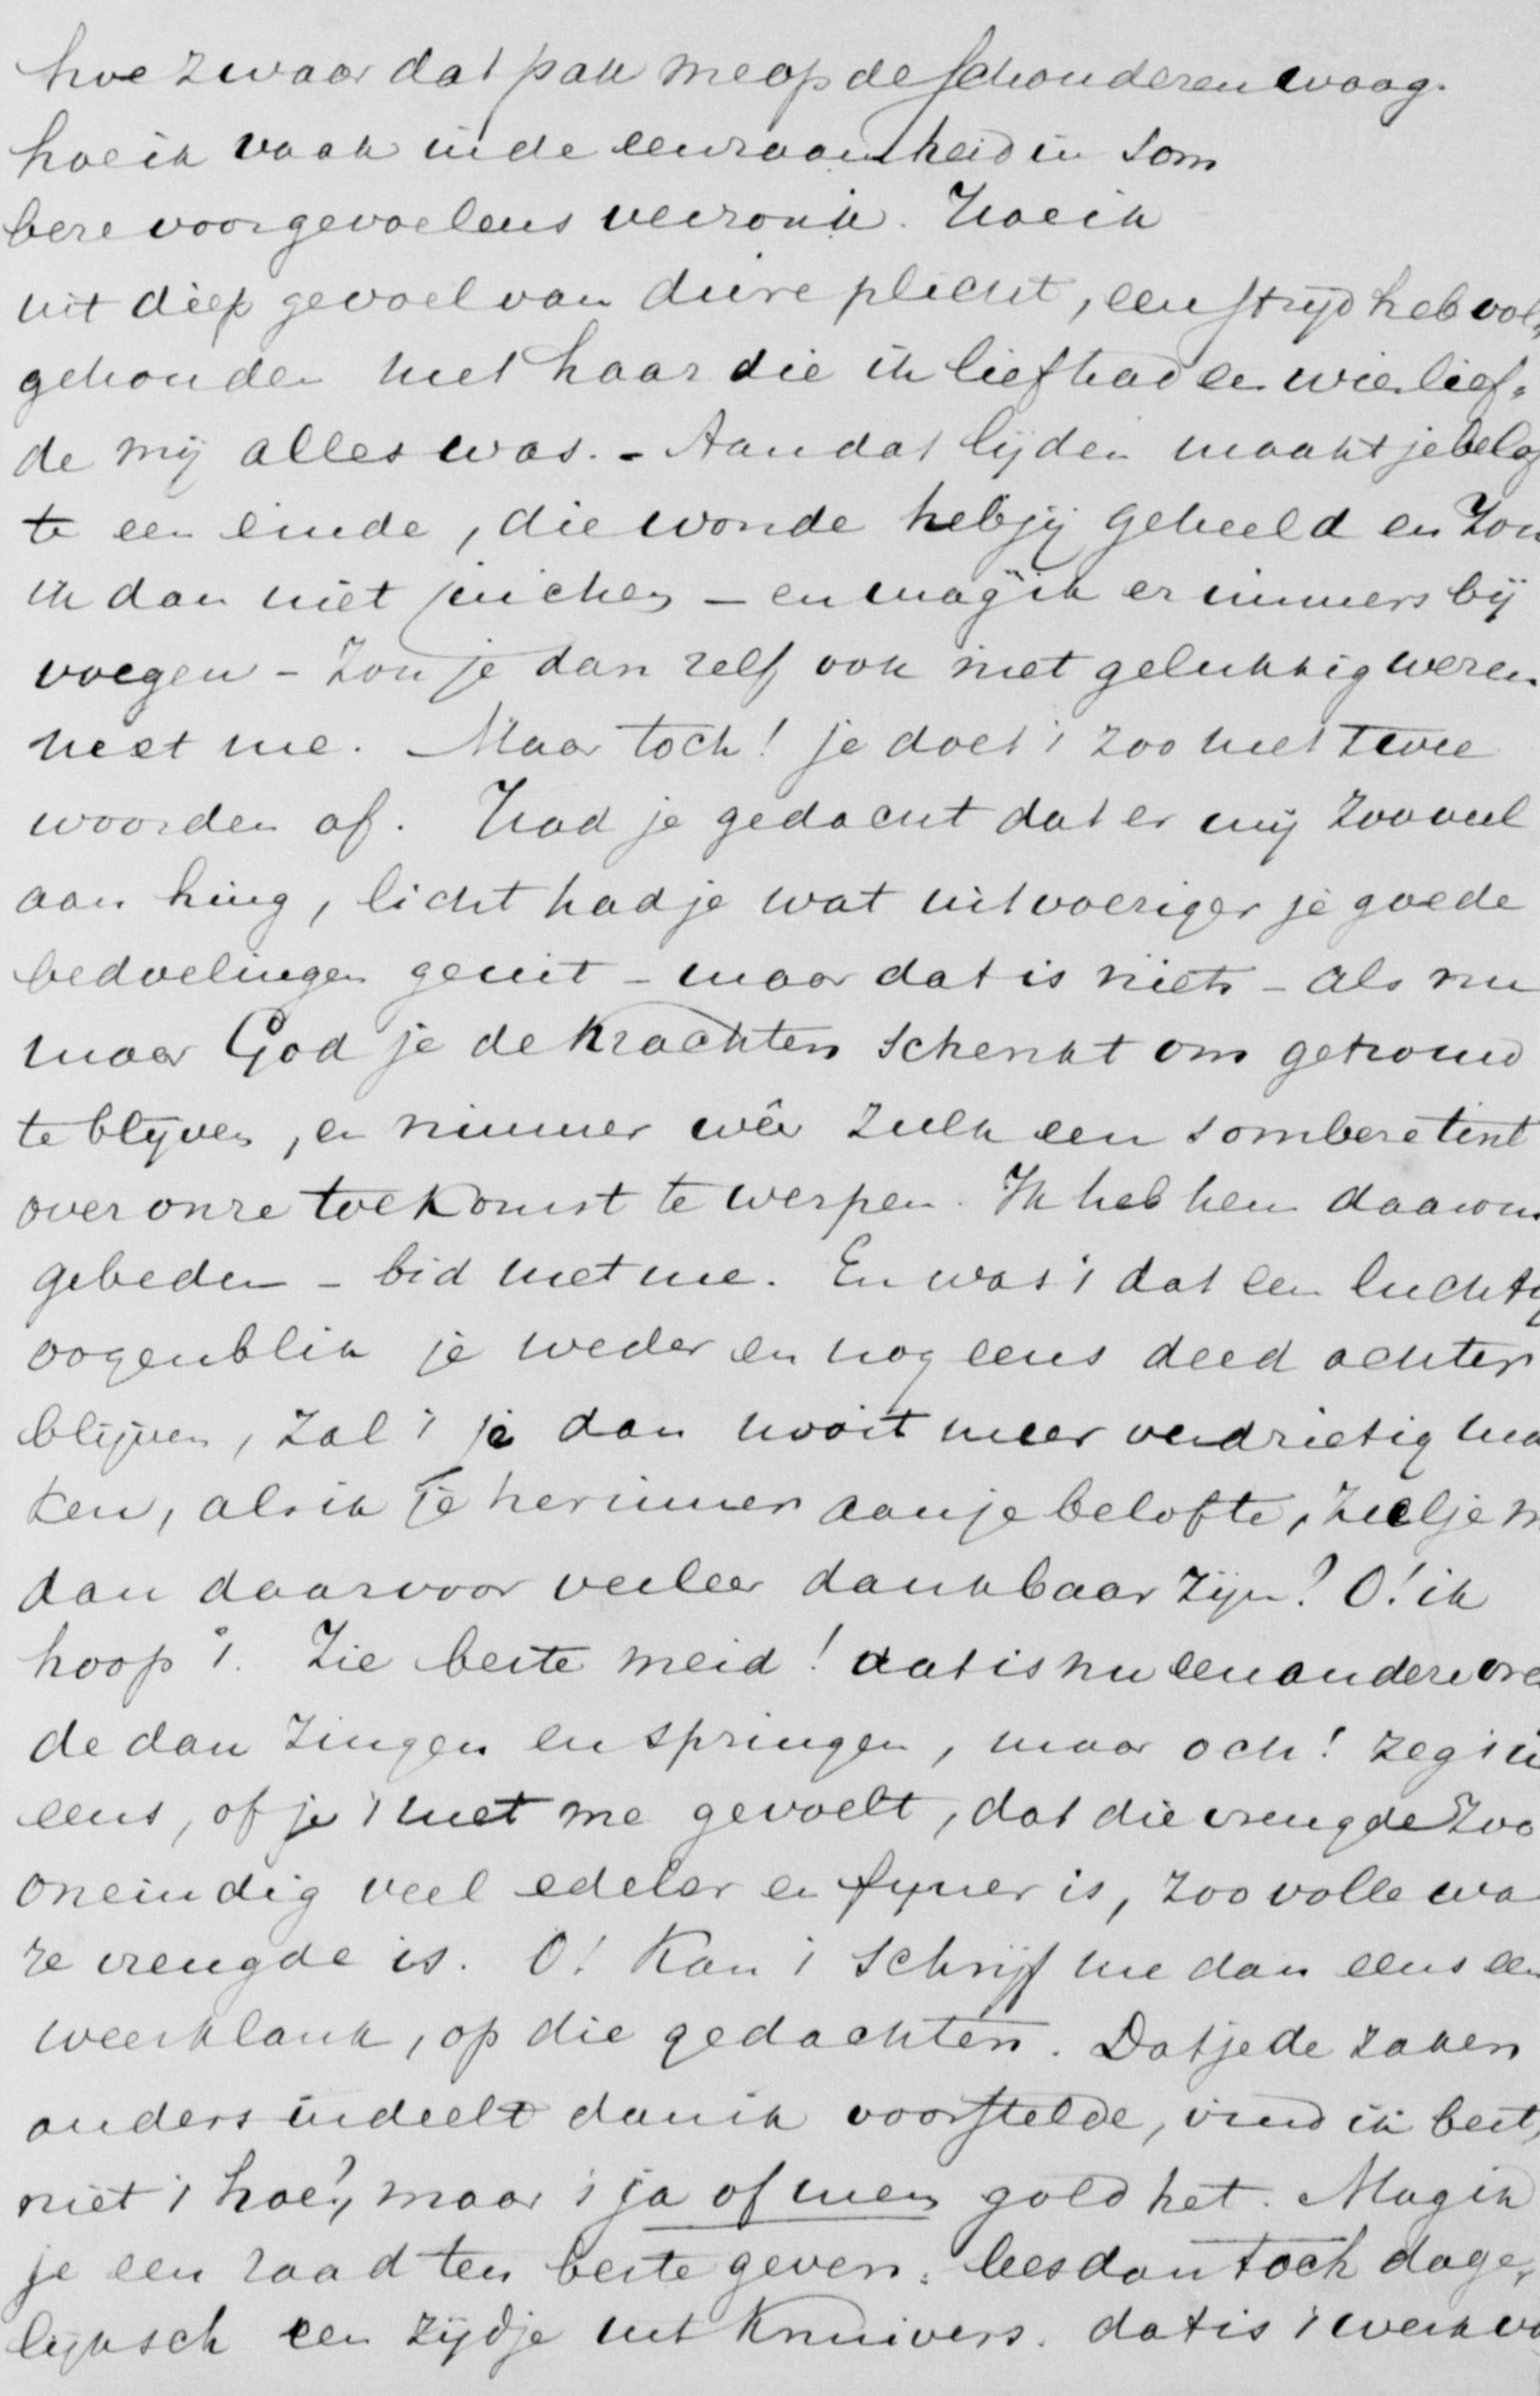 hoe zwaar dat pak me op de schouderen woog.
hoe ik vaak in de eenzaamheid in som
bere voorgevoelens verzonk. Hoe ik
uit diep gevoel van dure plicht, een strijd heb vol,
gehouden met haar die ik lief had en wier lief,
de mij alles was. - Aan dat lijden maakt je belof
te een einde, die wonde heb jij geheeld en zou
ik dan niet juichen - en mag ik er immers bij
voegen - zou je dan zelf ook niet gelukkig wezen
met me. Maar toch! je doet 't zoo met twee
woorden af. Had je gedacht dat er mij zooveel
aan hing, licht had je wat uitvoeriger je goede
bedoelingen geuit - maar dat is niets - als nu
maar God je de krachten schenkt om getrouw
te blijven, en nimmer wêer zulk een sombere tint
over onze toekomst te werpen. Ik heb hem daarom
gebeden - bid met me. En was 't dat een luchtig
oogenblik je weder en nog eens deed achter
blijven, zal 't je dan nooit meer verdrietig ma
ken, als ik je herinner aan je belofte, zul je m
dan daarvoor veeleer dankbaar zijn? O! ik
hoop 't. Zie beste meid! dat is nu een andere vreu
de dan zingen en springen, maar och! zeg 't
eens, of je 't met me gevoelt, dat die vreugde zoo
oneindig veel edeler en fijner is, zoo volle wa
re vreugde is. O! Kan 't schrijf me dan eens een
weerklank, op die gedachten. Dat je de zaken
anders indeelt dan ik voorstelde, vind ik best,
niet 't hoe?, maar 't ja of neen gold het. Mag ik
je een raad ten beste geven: lees dan toch dage,
lijksch een zijdje uit Knuivers. dat is 't werk va